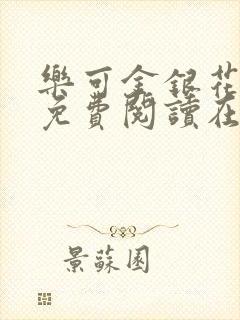 樂可金銀花
免費閱讀在
景蘇園